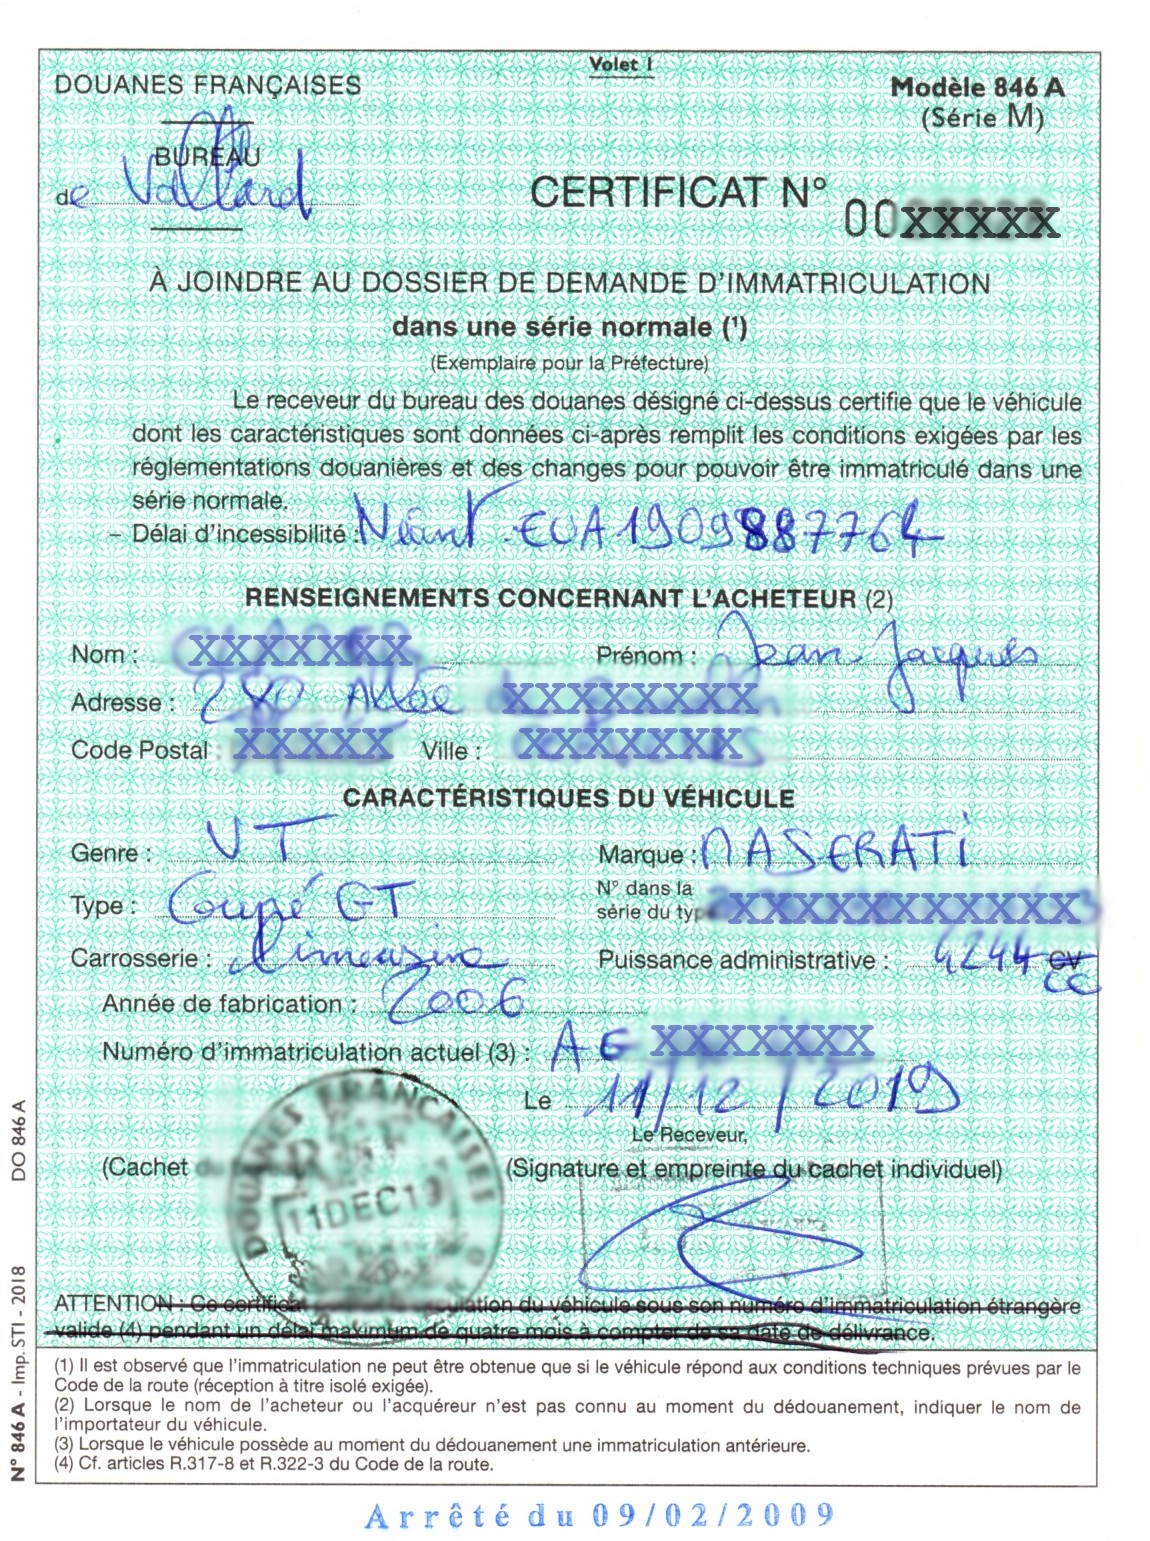 Volet 1
DOUANES FRANÇAISES
Modèle 846 A
(Série M)
BUREAU
de Vallard
CERTIFICAT N° 00XXXXX
À JOINDRE AU DOSSIER DE DEMANDE D'IMMATRICULATION
dans une série normale (1)
(Exemplaire pour la Préfecture)
Le receveur du bureau des douanes désigné ci-dessus certifie que le véhicule
dont les caractéristiques sont données ci-après remplit les conditions exigées par les
réglementations douanières et des changes pour pouvoir être immatriculé dans une
série normale.
– Délai d'incessibilité : Néant. EUA1909887764
RENSEIGNEMENTS CONCERNANT L'ACHETEUR (2)
Nom : XXXXXXX Prénom : Jean-Jacques
Adresse : 280 Allée XXXXXXXX
Code Postal : XXXXX Ville : XXXXXXX
CARACTÉRISTIQUES DU VÉHICULE
Genre : VT Marque : MASERATI
Type : Coupé GT N° dans la
série du type XXXXXXXXXXXXX
Carrosserie : Limousine Puissance administrative : 4244 CV
CC
Année de fabrication : 2006
Numéro d'immatriculation actuel (3) : AG XXXXXXX
Le 11/12/2019
Le Receveur,
(Cachet (Signature et empreinte du cachet individuel)
DOUANES FRANÇAISES
11 DEC 19
ATTENTION : Ce certifica ation du véhicule sous son numéro d'immatriculation étrangère
valide (4) pendant un délai maximum de quatre mois à compter de sa date de délivrance.
(1) Il est observé que l'immatriculation ne peut être obtenue que si le véhicule répond aux conditions techniques prévues par le
Code de la route (réception à titre isolé exigée).
(2) Lorsque le nom de l'acheteur ou l'acquéreur n'est pas connu au moment du dédouanement, indiquer le nom de
l'importateur du véhicule.
(3) Lorsque le véhicule possède au moment du dédouanement une immatriculation antérieure.
(4) Cf. articles R.317-8 et R.322-3 du Code de la route.
N° 846 A - Imp. STI - 2018 DO 846 A
Arrêté du 09/02/2009